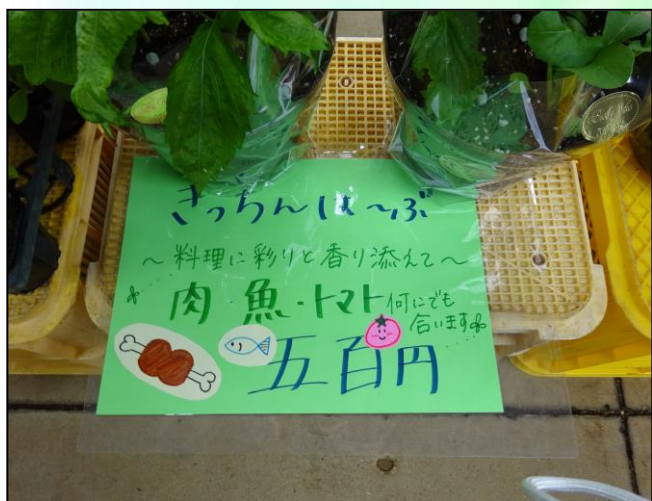 きっちんは〜ぶ
〜料理に彩りと香り添えて〜
肉・魚・トマト何にでも
合います
五百円